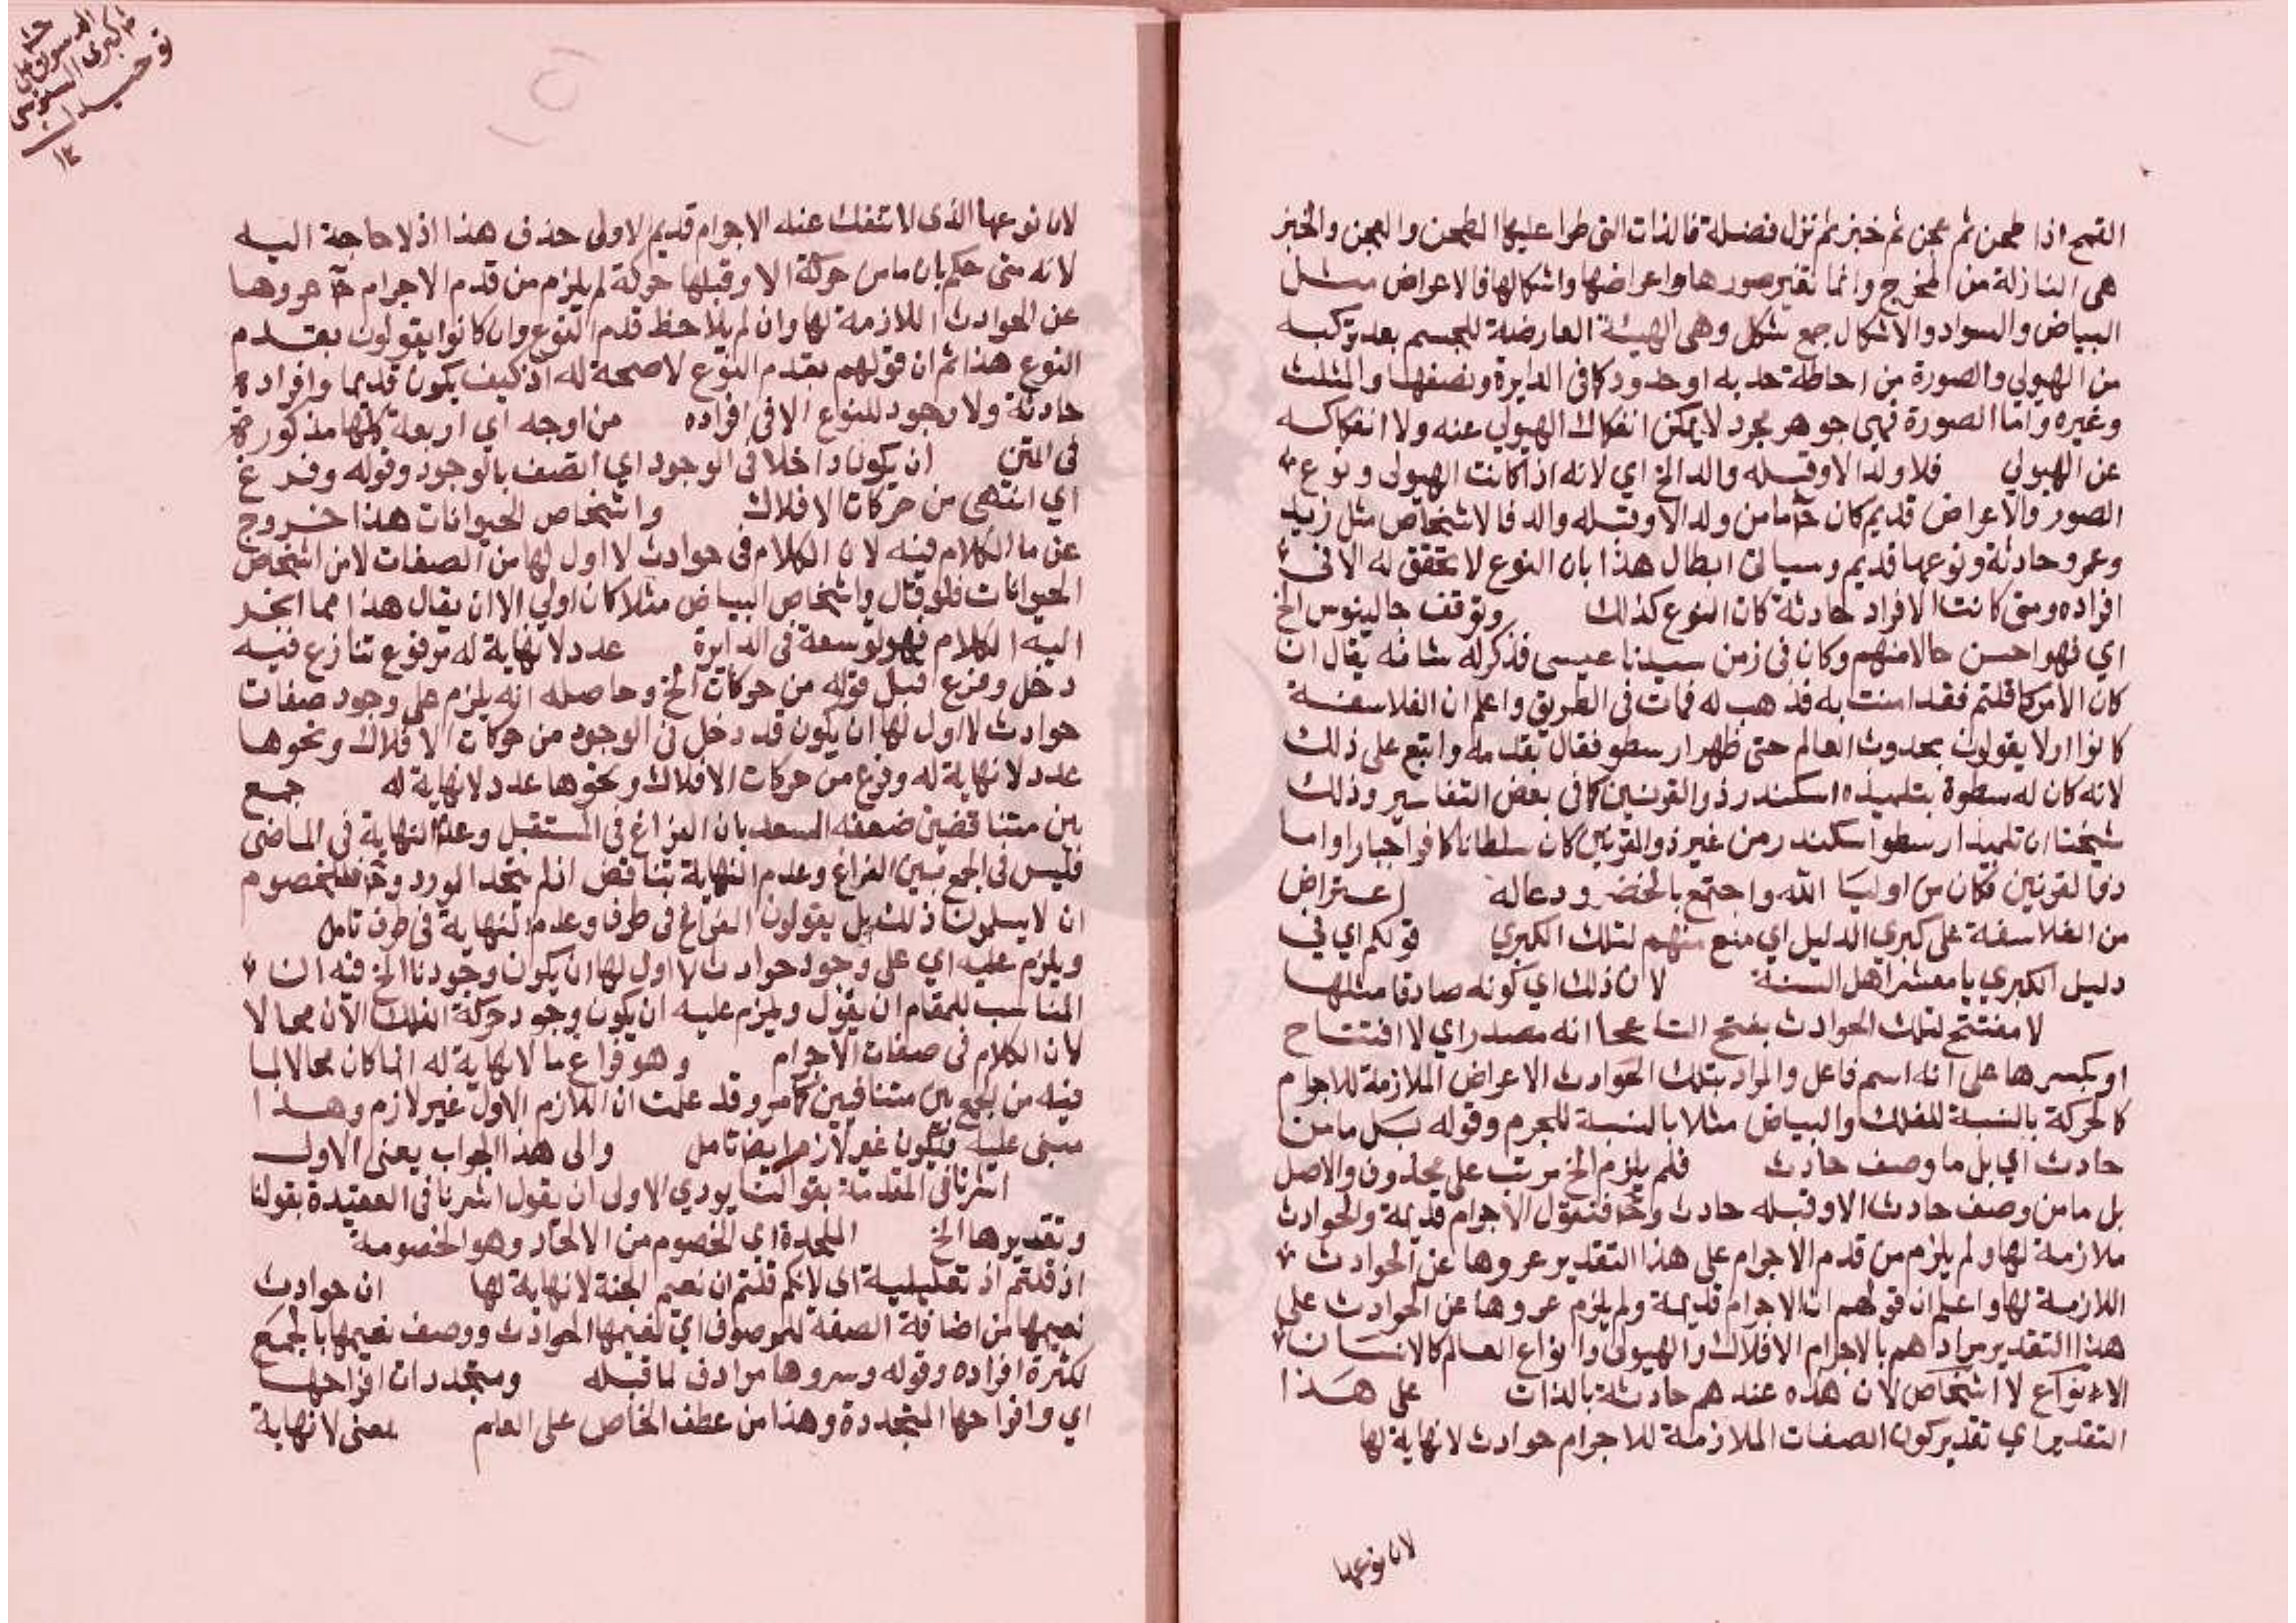 القمح اذا طحن ثم عجن ثم خبز ثم نزل فضلة فالذات التي طرا عليها الطحن والعجن والخبز
هي النازلة من المخرج وانما تغير صورها واعراضها واشكالها فالاعراض مثل
البياض والسواد والاشكال جمع شكل وهي الهيئة العارضة للجسم بعد تركبه
من الهيولي والصورة من احاطة حد به او حدود كما في الدايرة ونصفها والمثلث
وغيره واما الصورة فهي جوهر مجرد لا يمكن انفكاك الهيولي عنه ولا انفكاكه
عن الهيولي فلا ولد الا وقبله والد الخ اي لانه اذا كانت الهيولى ونوع
الصور والاعراض قديم كان ما من ولد الا وقبله والد فالاشخاص مثل زيد
وعمرو حادثة ونوعها قديم وسياتي ابطال هذا بان النوع لا تحقق له الا في
افراده ومتى كانت الافراد حادثة كان النوع كذلك وتوقف جالينوس الخ
اي فهو احسن حالا منهم وكان في زمن سيدنا عيسى فذكر له شانه يقال ان
كان الامر كما قلتم فقد امنت به فذهب له فمات في الطريق واعلم ان الفلاسفة
كانوا اولا يقولون بحدوث العالم حتى ظهر ارسطو فقال بقدمه واتبع على ذلك
لانه كان له سطوة بتلميذه اسكندر ذو القرنين كما في بعض التفاسير وذلك
شيخنا ان تلميذ ارسطو اسكندر من غير ذو القرنين كان سلطانا كافرا جبارا واما
ذو القرنين فكان من اوليا الله واجتمع بالخضر ودعا له اعتراض
من الفلاسفة على كبري الدليل اي منع منهم لتلك الكبري قولكم اي في
دليل الكبري يا معشر اهل السنة لان ذلك اي كونه صادقا مثلها
لا مفتتح لتلك الحوادث بفتح التا على انه مصدر اي لا افتتاح
او بكسرها على انه اسم فاعل والمراد بتلك الحوادث الاعراض الملازمة للاجرام
كالحركة بالنسبة للفلك والبياض مثلا بالنسبة للجرم وقوله بل ما من
حادث اي بل ما وصف حادث فلم يلزم الخ مرتب على محذوف والاصل
بل ما من وصف حادث الا وقبله حادث وح فنقول الاجرام قديمة والحوادث
ملازمة لها ولم يلزم من قدم الاجرام على هذا التقدير عروها عن الحوادث
اللازمة لها واعلم ان قولهم ان الاجرام قديمة ولم يلزم عروها عن الحوادث على
هذا التقدير مرادهم بالاجرام الافلاك والهيولى وانواع العالم كالانسان
الانواع لا اشخاص لان هذه عندهم حادثة بالذات على هذا
التقدير اي تقدير كون الصفات الملازمة للاجرام حوادث لا نهاية لها
لان نوعها
توحيد
١٢
لان نوعها الذي لا تنفك عنه الاجرام قديم الاولى حذف هذا اذ لا حاجة اليه
لانه متى حكم بان ما من حركة الا وقبلها حركة لم يلزم من قدم الاجرام ح عروها
عن الحوادث اللازمة لها وان لم يلاحظ قدم النوع وان كانوا يقولون بقدم
النوع هذا ثم ان قولهم بقدم النوع لا صحة له اذ كيف يكون قديما وافراده
حادثة ولا وجود للنوع الا في افراده من اوجه اي اربعة كلها مذكورة
في المتن ان يكون داخلا في الوجود اي اتصف بالوجود وقوله وفرغ
اي انتهى من حركات الافلاك واشخاص الحيوانات هذا خروج
عن ما الكلام فيه لان الكلام في حوادث لا اول لها من الصفات لا من اشخاص
الحيوانات فلو قال واشخاص البياض مثلا كان اولي الا ان يقال هذا مما انجر
اليه الكلام فهو توسعة في الدايرة عدد لا نهاية له مرفوع تنازع فيه
دخل وفرغ قبل قوله من حركات الخ وحاصله انه يلزم على وجود صفات
حوادث لا اول لها ان يكون قد دخل في الوجود من حركات الافلاك ونحوها
عدد لا نهاية له وفرغ من حركات الافلاك ونحوها عدد لا نهاية له جمع
بين متناقضين ضعفه السعد بان الفراغ في المستقبل وعدم النهاية في الماضي
فليس في الجمع بين الفراغ وعدم النهاية تناقض اذ لم يتحد المورد وح فللخصوم
ان لا يسلمون ذلك بل يقولون الفراغ في طرف وعدم النهاية في طرف تامل
ويلزم عليه اي على وجود حوادث لا اول لها ان يكون وجودنا الخ فيه ان
المناسب للمقام ان يقول ويلزم عليه ان يكون وجود حركة الفلك الان محالا
لان الكلام في صفات الاجرام وهو فراغ ما لا نهاية له انما كان محالا لما
فيه من الجمع بين متنافيين كما مر وقد علمت ان اللازم الاول غير لازم وهذا
مبني عليه فيكون غير لازم ايضا تامل والى هذا الجواب يعني الاول
اشرنا في المقدمة بقولنا يودي الاولى ان يقول اشرنا في العقيدة بقولنا
وتقديرها الخ الملحدة اي الخصوم من الالحاد وهو الخصومة
اذ قلتم اذ تعليلية اي لانكم قلتم ان نعيم الجنة لا نهاية لها ان حوادث
نعيمها من اضافة الصفة للموصوف اي نعيمها الحوادث ووصف نعيمها بالجمع
لكثرة افراده وقوله وسروها مرادف لما قبله ومتجددات افراحها
اي وافراحها المتجددة وهذا من عطف الخاص على العام بمعنى لا نهاية